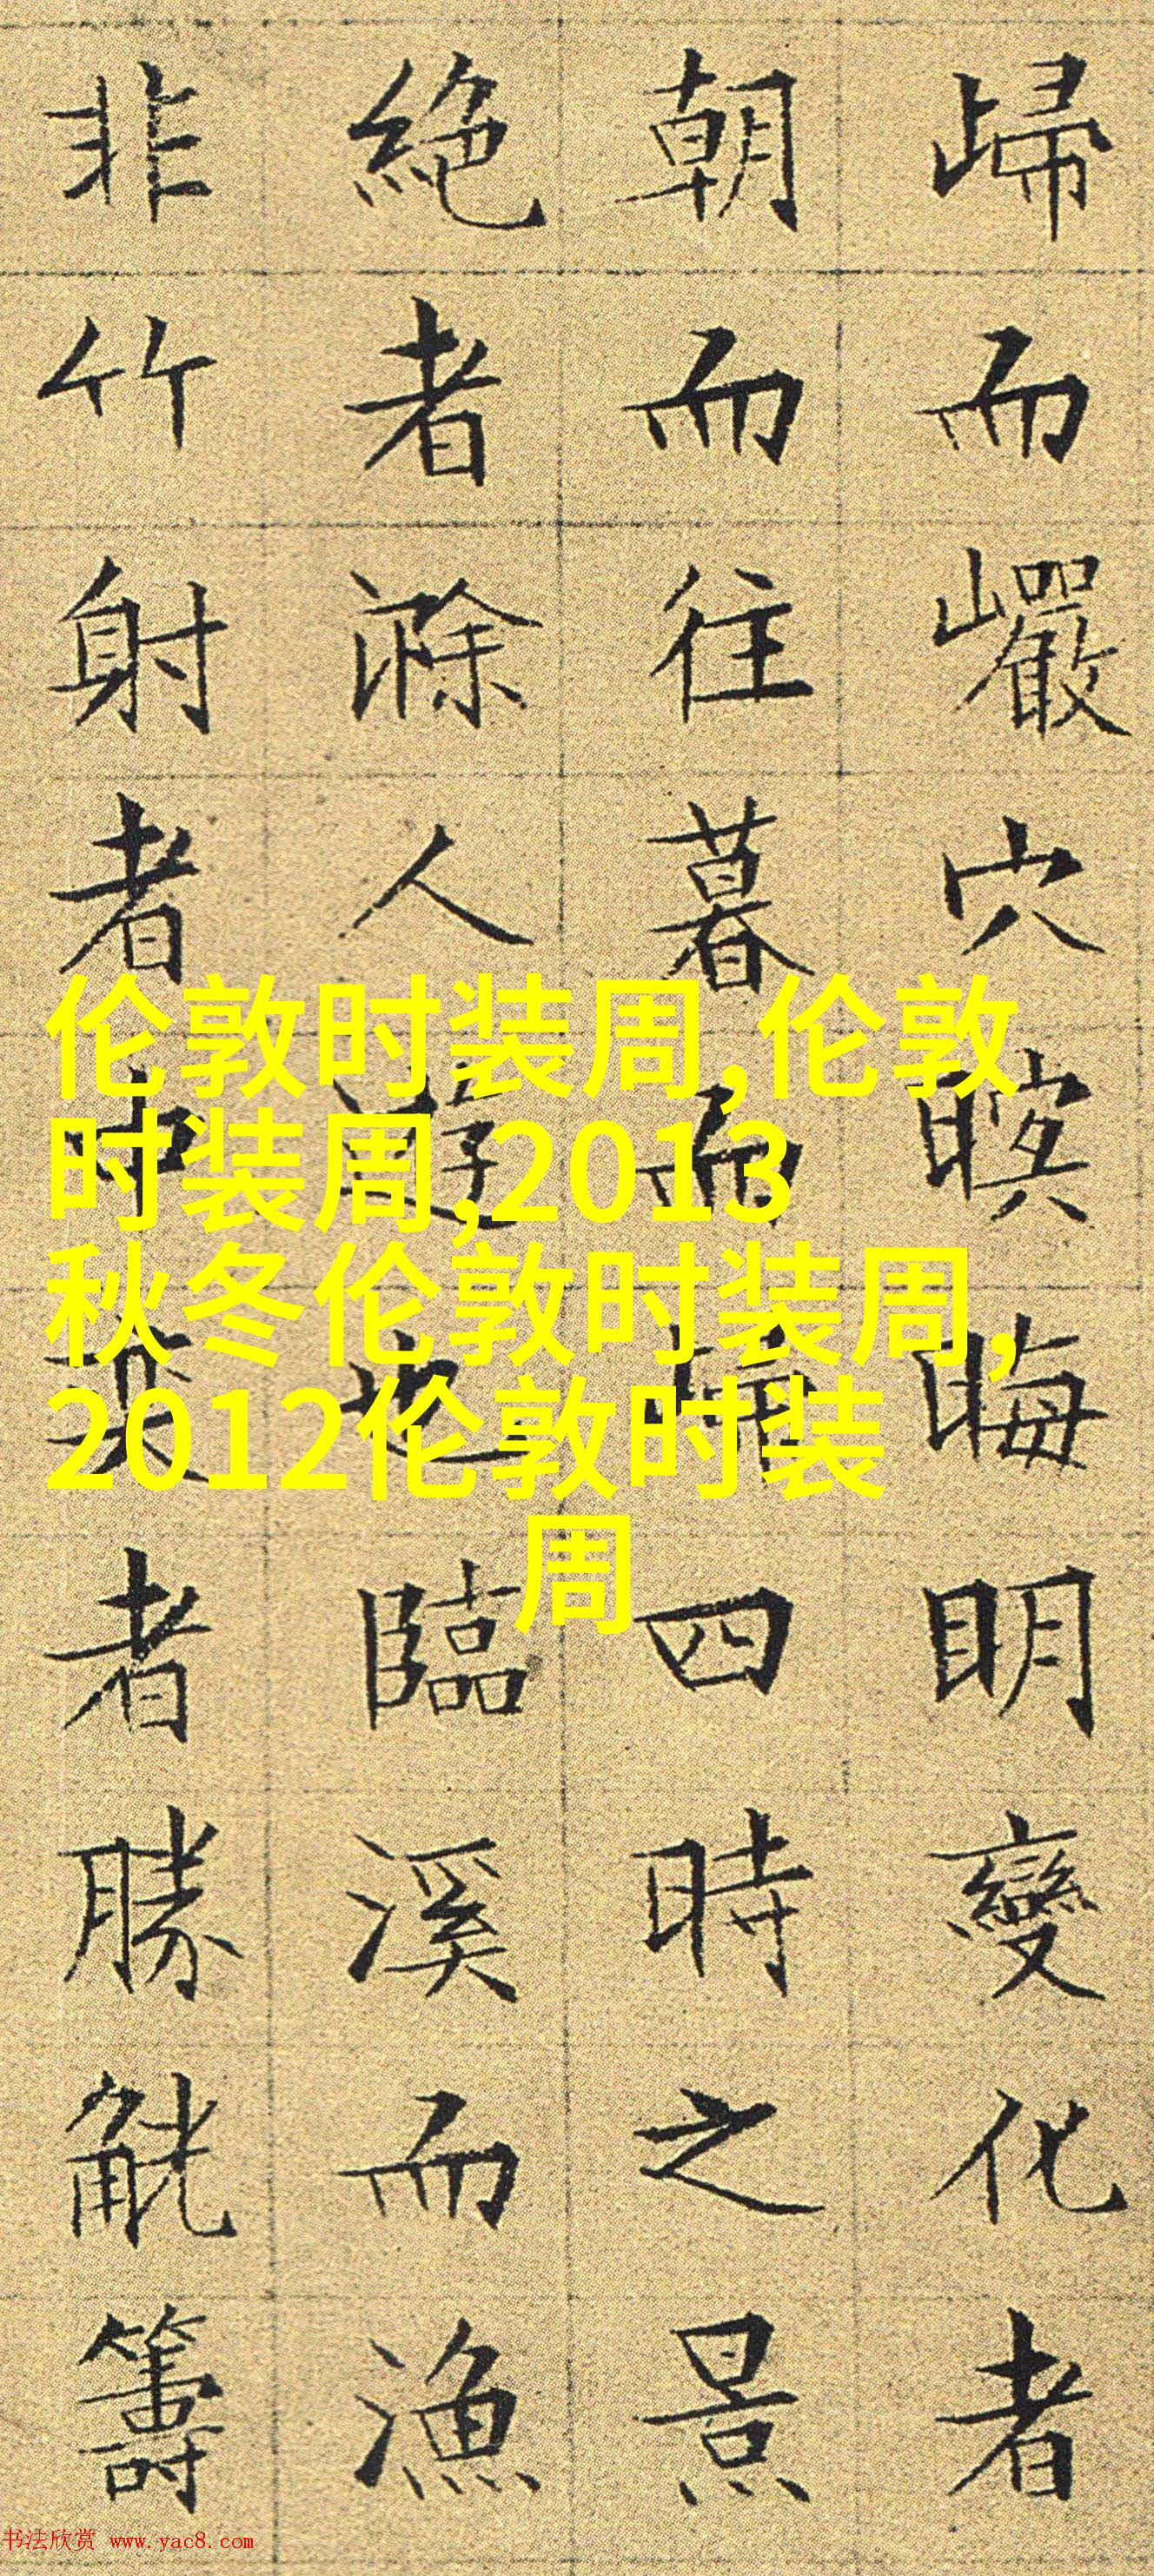 歸而巖穴暝晦明變化者
朝而往暮而歸四時之景
絕者滁人遊也臨溪而漁
非竹射者中奕者勝觥籌
伦敦时装周,伦敦
时装周,2013
秋冬伦敦时装周,
2012伦敦时装
周
书法欣赏 www.yac8.com